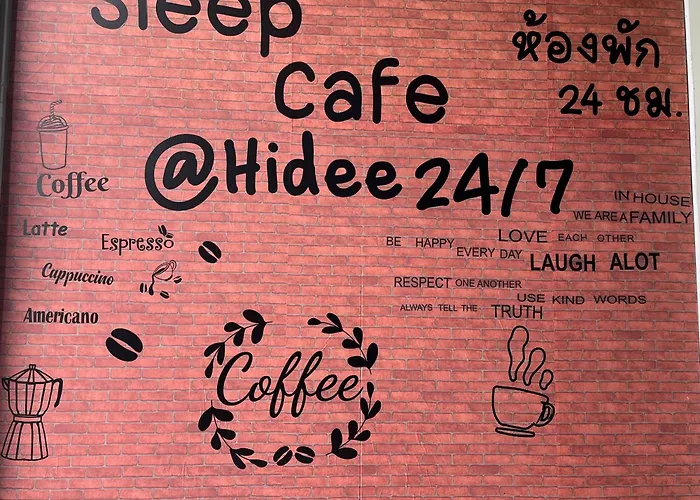 Sleep
Cafe
@Hidee 24/7
ห้องพัก
24 ชม.
Coffee
Latte
Espresso
Cappuccino
Americano
Coffee
IN HOUSE
WE ARE A FAMILY
LOVE EACH OTHER
BE HAPPY EVERY DAY LAUGH ALOT
RESPECT ONE ANOTHER
USE KIND WORDS
ALWAYS TELL THE TRUTH